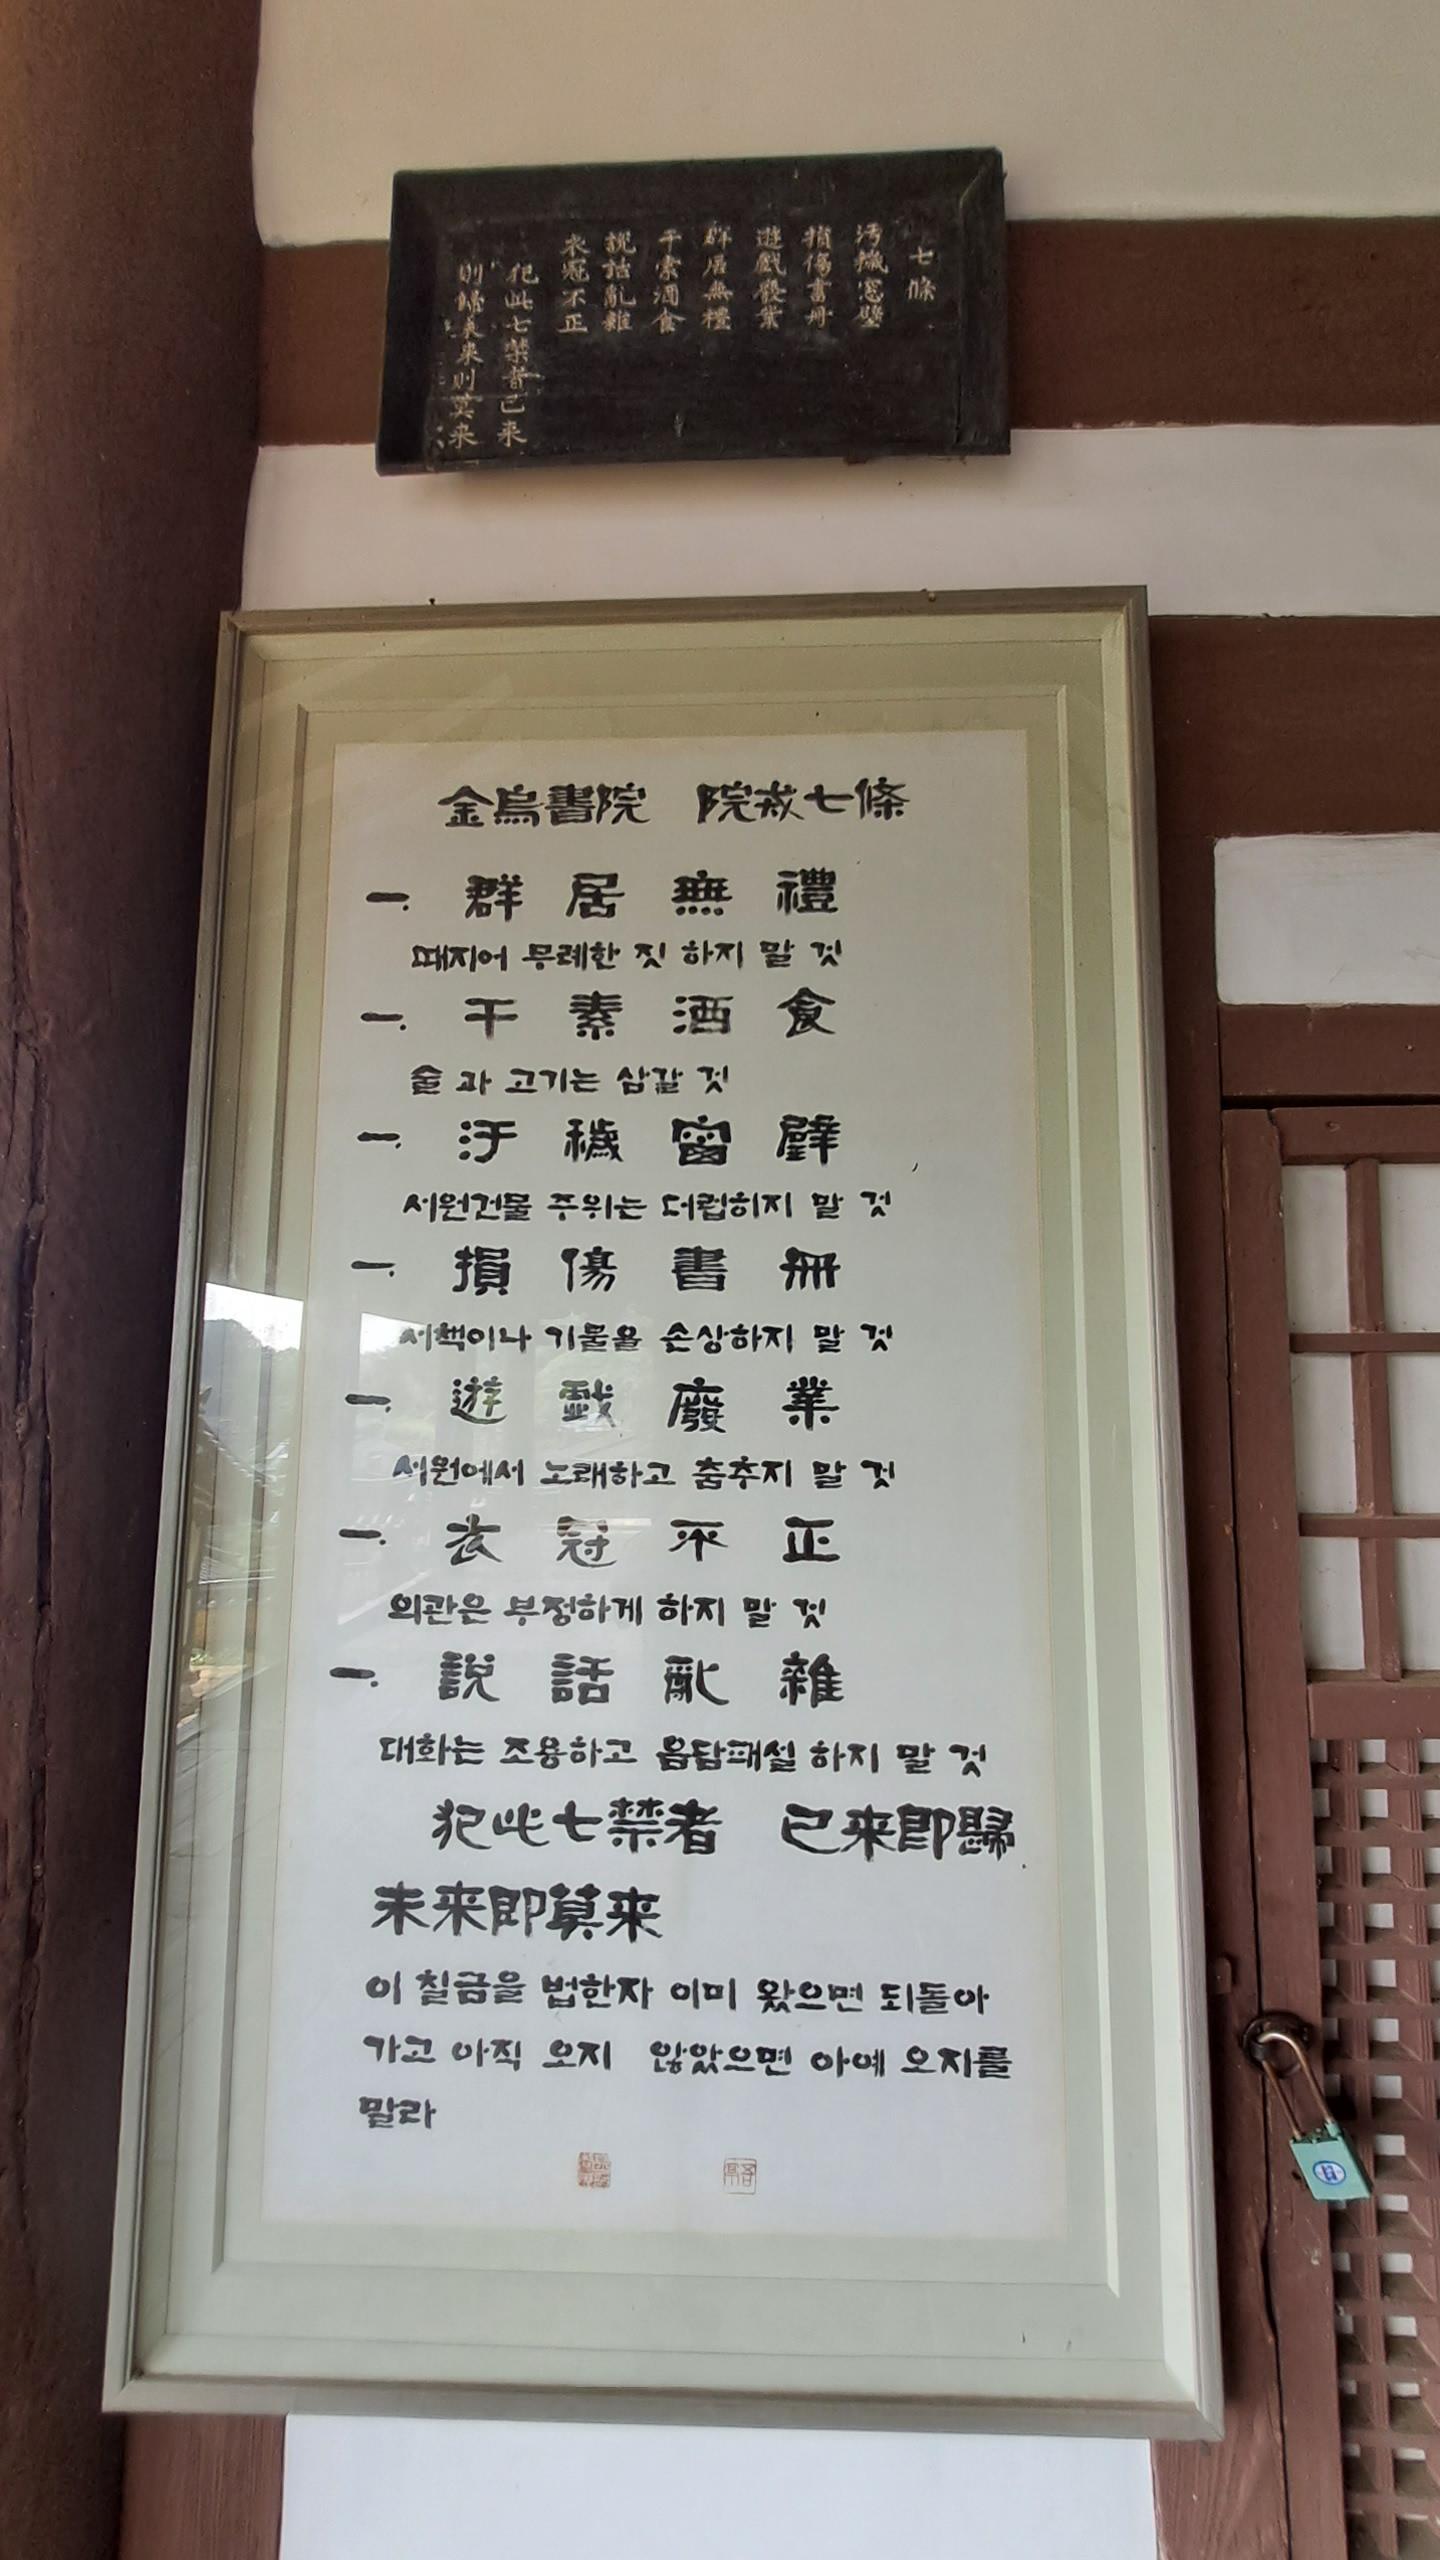 七條
汚穢窓壁
損傷書冊
遊戲廢業
群居無禮
干索酒食
說話亂雜
衣冠不正
犯此七禁者已来
則歸未来則莫来
金烏書院 院戒七條
一. 群居無禮
떼지어 무례한 짓 하지 말 것
一. 干素酒食
술과 고기는 삼갈 것
一. 汙穢窗壁
서원건물 주위는 더럽히지 말 것
一. 損傷書冊
서책이나 기물을 손상하지 말 것
一. 遊戱廢業
서원에서 노래하고 춤추지 말 것
一. 衣冠不正
의관은 부정하게 하지 말 것
一. 說話亂雜
대화는 조용하고 음담패설 하지 말 것
犯此七禁者 已来即歸
未来即莫来
이 칠금을 범한자 이미 왔으면 되돌아
가고 아직 오지 않았으면 아예 오지를
말라